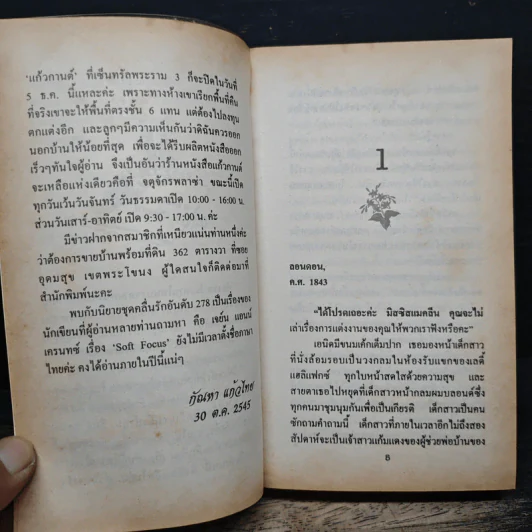 'แก้วกานต์' ที่เซ็นทรัลพระราม 3 ก็จะปิดในวันที่
5 ธ.ค. นี้แหละค่ะ เพราะทางห้างเขาเรียกพื้นที่คืน
ที่จริงเขาจะให้พื้นที่ตรงชั้น 6 แทน แต่ต้องไปลงทุน
ตกแต่งอีก และลูกๆมีความเห็นกันว่าดิฉันควรออก
นอกบ้านให้น้อยที่สุด เพื่อจะได้รีบผลิตหนังสือออก
เร็วๆทันใจผู้อ่าน จึงเป็นอันว่าร้านหนังสือแก้วกานต์
จะเหลือแห่งเดียวคือที่ จตุจักรพลาซ่า ขณะนี้เปิด
ทุกวันเว้นวันจันทร์ วันธรรมดาเปิด 10:00 - 16:00น.
ส่วนวันเสาร์-อาทิตย์ เปิด 9:30 - 17:00 น. ค่ะ
มีข่าวฝากจากสมาชิกที่เหนียวแน่นท่านหนึ่งค่ะ
ว่าต้องการขายบ้านพร้อมที่ดิน 362 ตารางวา ที่ซอย
อุดมสุข เขตพระโขนง ผู้ใดสนใจก็ติดต่อมาที่
สำนักพิมพ์นะคะ
พบกับนิยายชุดคลื่นรักอันดับ 278 เป็นเรื่องของ
นักเขียนที่ผู้อ่านหลายท่านถามหา คือ เจย์น แอนน์
เครนทซ์ เรื่อง 'Soft Focus' ยังไม่มีเวลาตั้งชื่อภาษา
ไทยค่ะ คงได้อ่านภายในปีนี้แน่ๆ
กัณหา แก้วไทย
30 ต.ค. 2545
1
ลอนดอน,
ค.ศ. 1843
"ได้โปรดเถอะค่ะ มิสซิสแมคลีน คุณจะไม่
เล่าเรื่องการแต่งงานของคุณให้พวกเราฟังหรือคะ"
เอนิดมีขนมเค้กเต็มปาก เธอมองหน้าเด็กสาว
ที่นั่งล้อมรอบเป็นวงกลมในห้องรับแขกของเลดี้
แฮลิแฟกซ์ ทุกใบหน้าสดใสด้วยความสุข และ
สายตาเธอไปหยุดที่เด็กสาวหน้ากลมผมบลอนด์ซึ่ง
ทุกคนมาชุมนุมกันเพื่อเป็นเกียรติ เด็กสาวเป็นคน
ซักถามคำถามนี้ เด็กสาวที่ภายในเวลาอีกไม่ถึงสอง
สัปดาห์จะเป็นเจ้าสาวแก้มแดงของผู้ช่วยพ่อบ้านของ
8